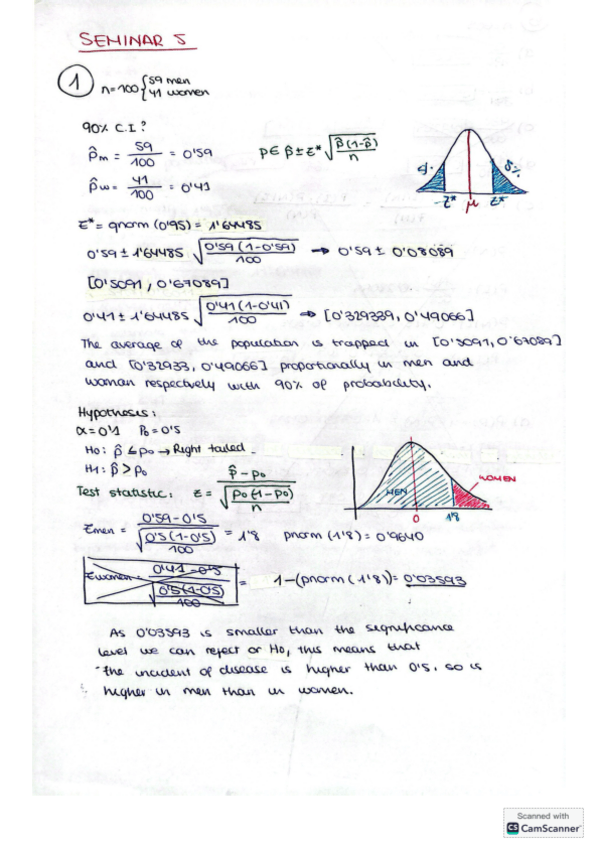 SEMINAR 5
1
n=100 { 59 men
41 women
90% C.I?
p̂m = 59/100 = 0'59
p ∈ p̂ ± z* √(p̂(1-p̂)/n)
p̂w = 41/100 = 0'41
5%
-z* μ z*
z* = qnorm (0'95) = 1'64485
0'59 ± 1'64485 √(0'59 (1-0'59)/100) → 0'59 ± 0'08089
[0'5091, 0'67089]
0'41 ± 1'64485 √(0'41 (1-0'41)/100) → [0'329339, 0'49066]
The average of the population is trapped in [0'5091, 0'67089]
and [0'32933, 0'49066] proportionally in men and
woman respectively with 90% of probability.
Hypothesis:
α=0'1 P0=0'5
H0: p̂ ≤ p0 → Right tailed.
H1: p̂ > p0
Test statistic: z = (p̂ - p0)/√(p0(1-p0)/n)
MEN
WOMEN
0 1'8
zmen = (0'59-0'5)/√(0'5(1-0'5)/100) = 1'8 pnorm (1'8) = 0'9640
zwomen = (0'41-0'5)/√(0'5(1-0'5)/100) = 1-(pnorm (1'8)) = 0'03593
As 0'03593 is smaller than the significance
level we can reject or H0, this means that
the incident of disease is higher than 0'5, so is
higher in men than in women.
Scanned with
CS CamScanner